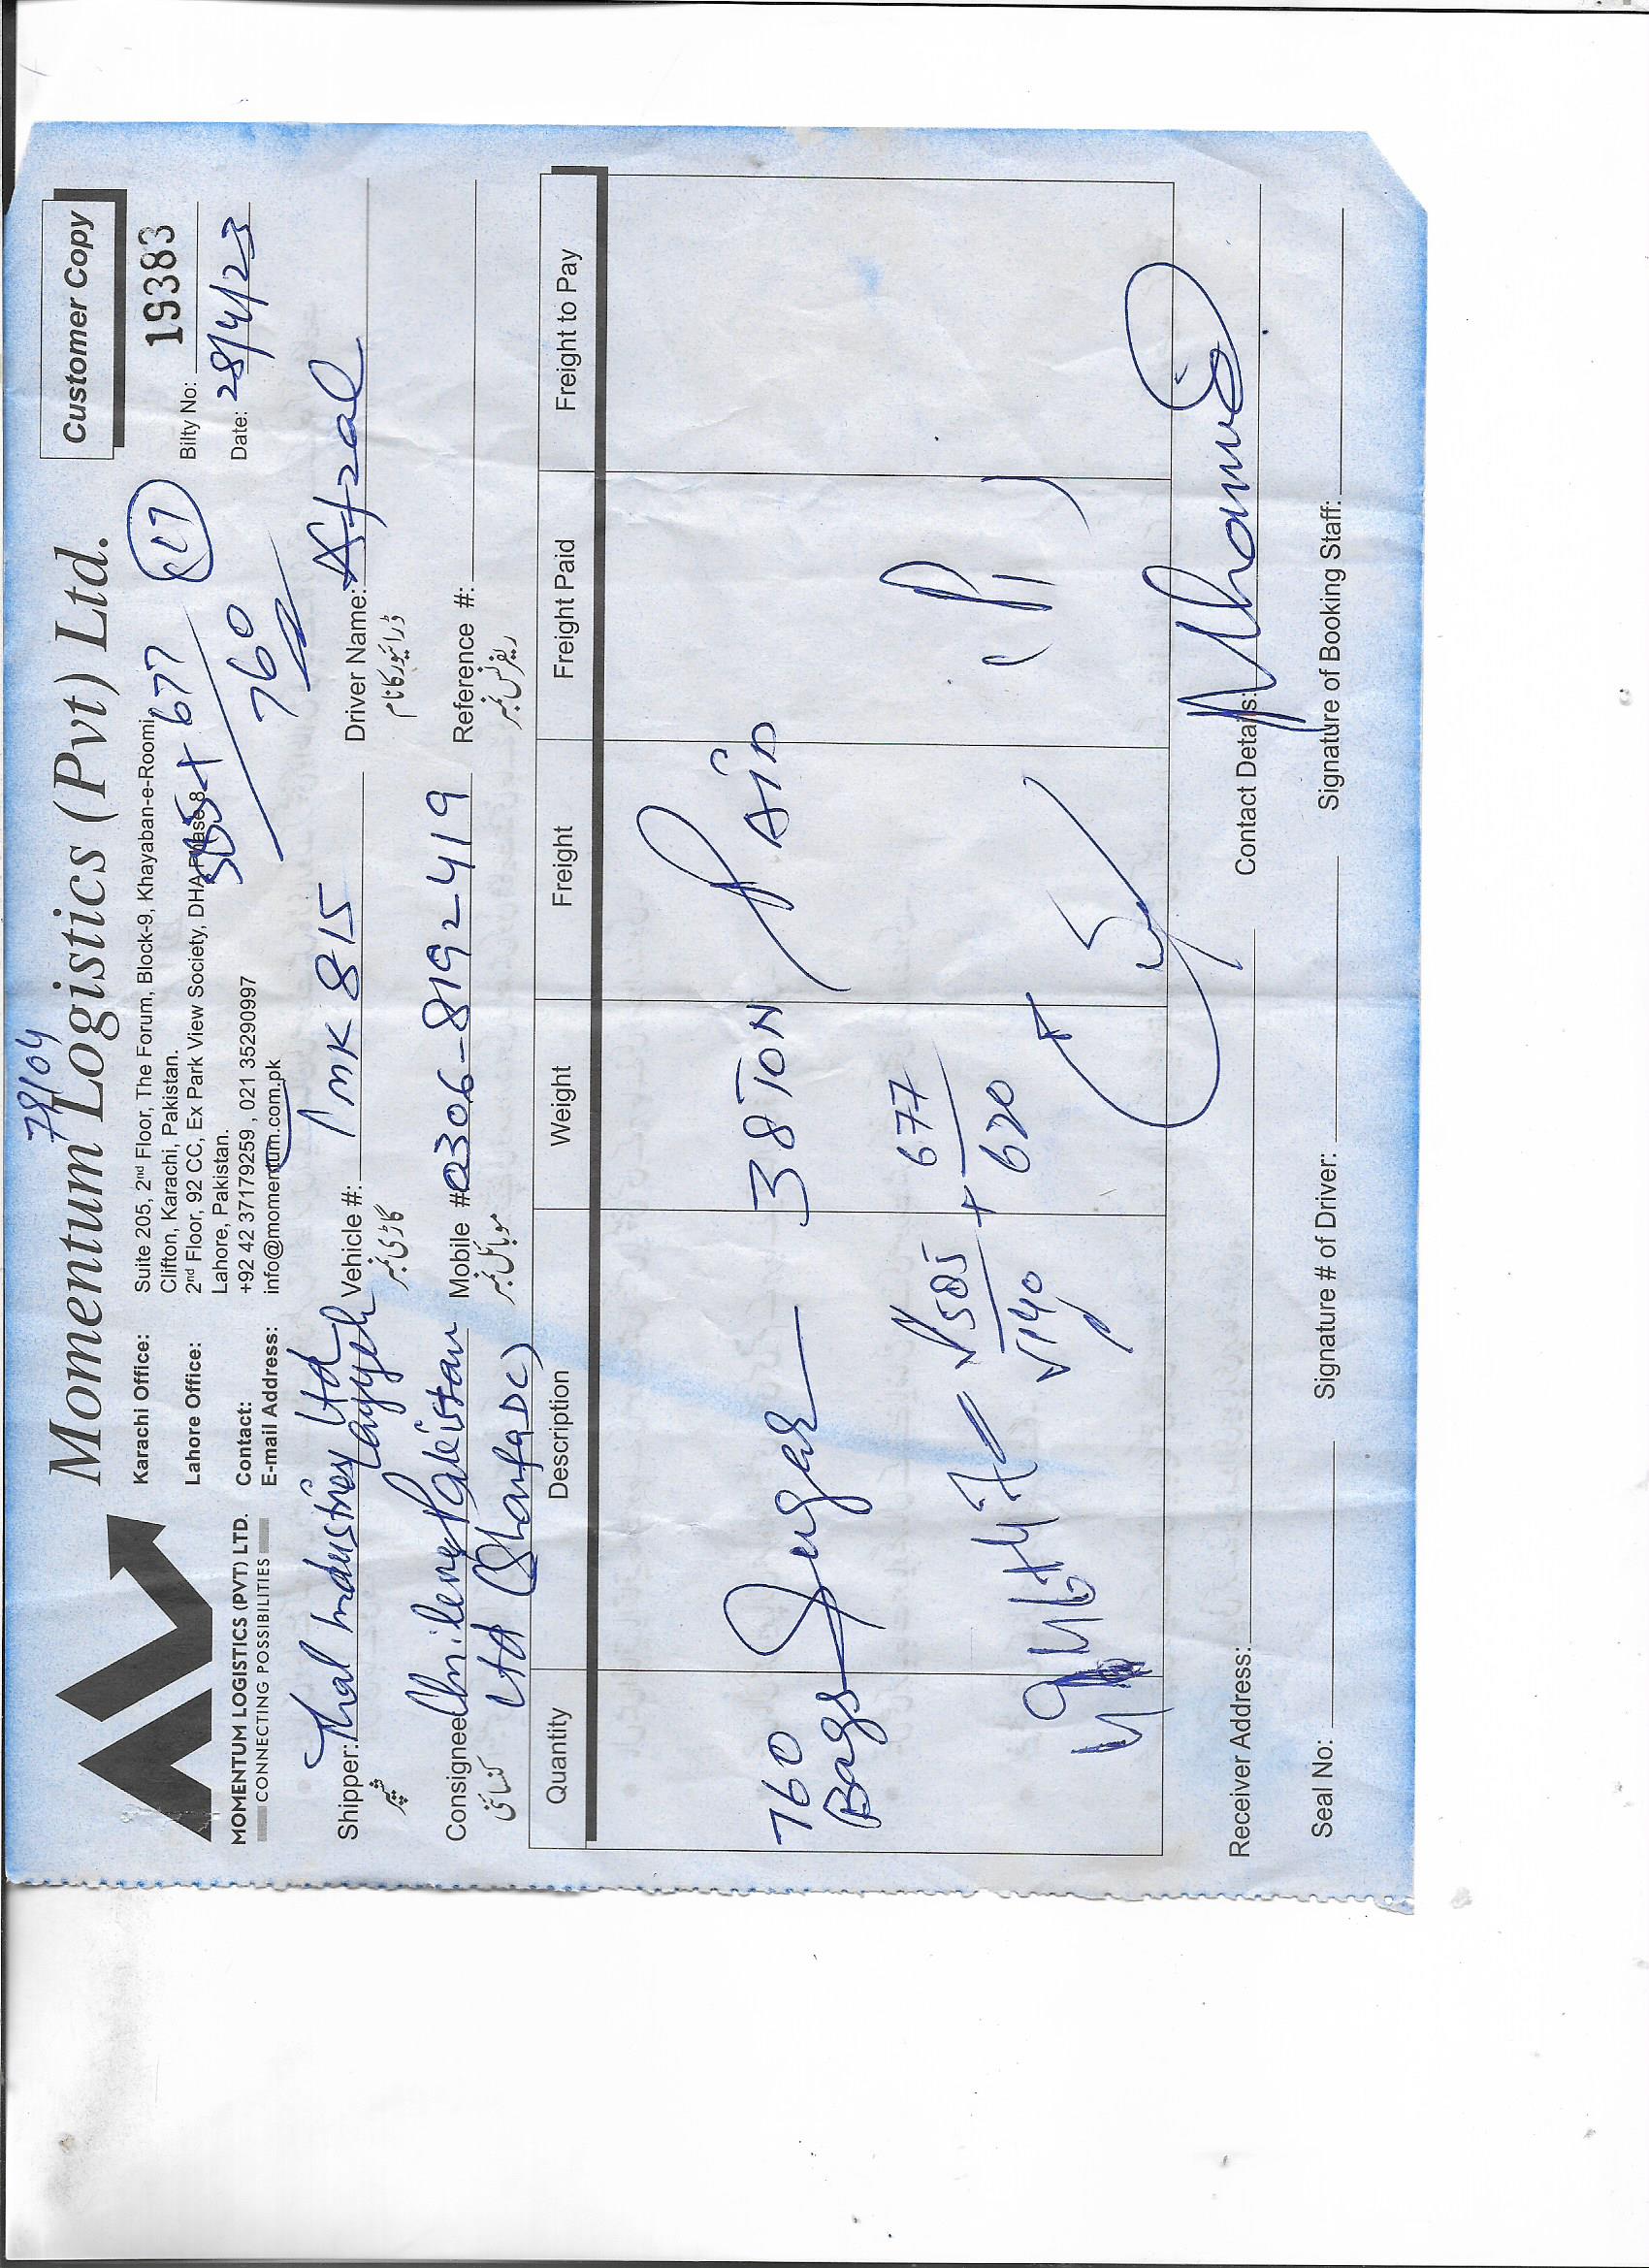 78/04
Momentum Logistics (Pvt) Ltd.
Customer Copy
MOMENTUM LOGISTICS (PVT) LTD.
CONNECTING POSSIBILITIES
Karachi Office: Suite 205, 2nd Floor, The Forum, Block-9, Khayaban-e-Roomi,
Clifton, Karachi, Pakistan.
Lahore Office: 2nd Floor, 92 CC, Ex Park View Society, DHA Phase 8,
Lahore, Pakistan.
Contact: +92 42 37179259 , 021 35290997
E-mail Address: info@momentum.com.pk
585 + 677
760
Bilty No: 19383
Date: 28/4/23
Shipper: Thal Industries Ltd Layyah
شپر
Vehicle #: TMK 815
گاڑی نمبر
Driver Name: Afzal
ڈرائیور کا نام
Consignee Unilever Pakistan
Ltd (Sharfa DC)
کنسائنی
Mobile # 0306-8192419
موبائل نمبر
Reference #:
ریفرنس نمبر
Quantity Description Weight Freight Freight Paid Freight to Pay
760 Bags Sugar 38 TON PAID
585 + 677
140 620
Receiver Address: Contact Details:
Seal No: Signature # of Driver: Signature of Booking Staff: